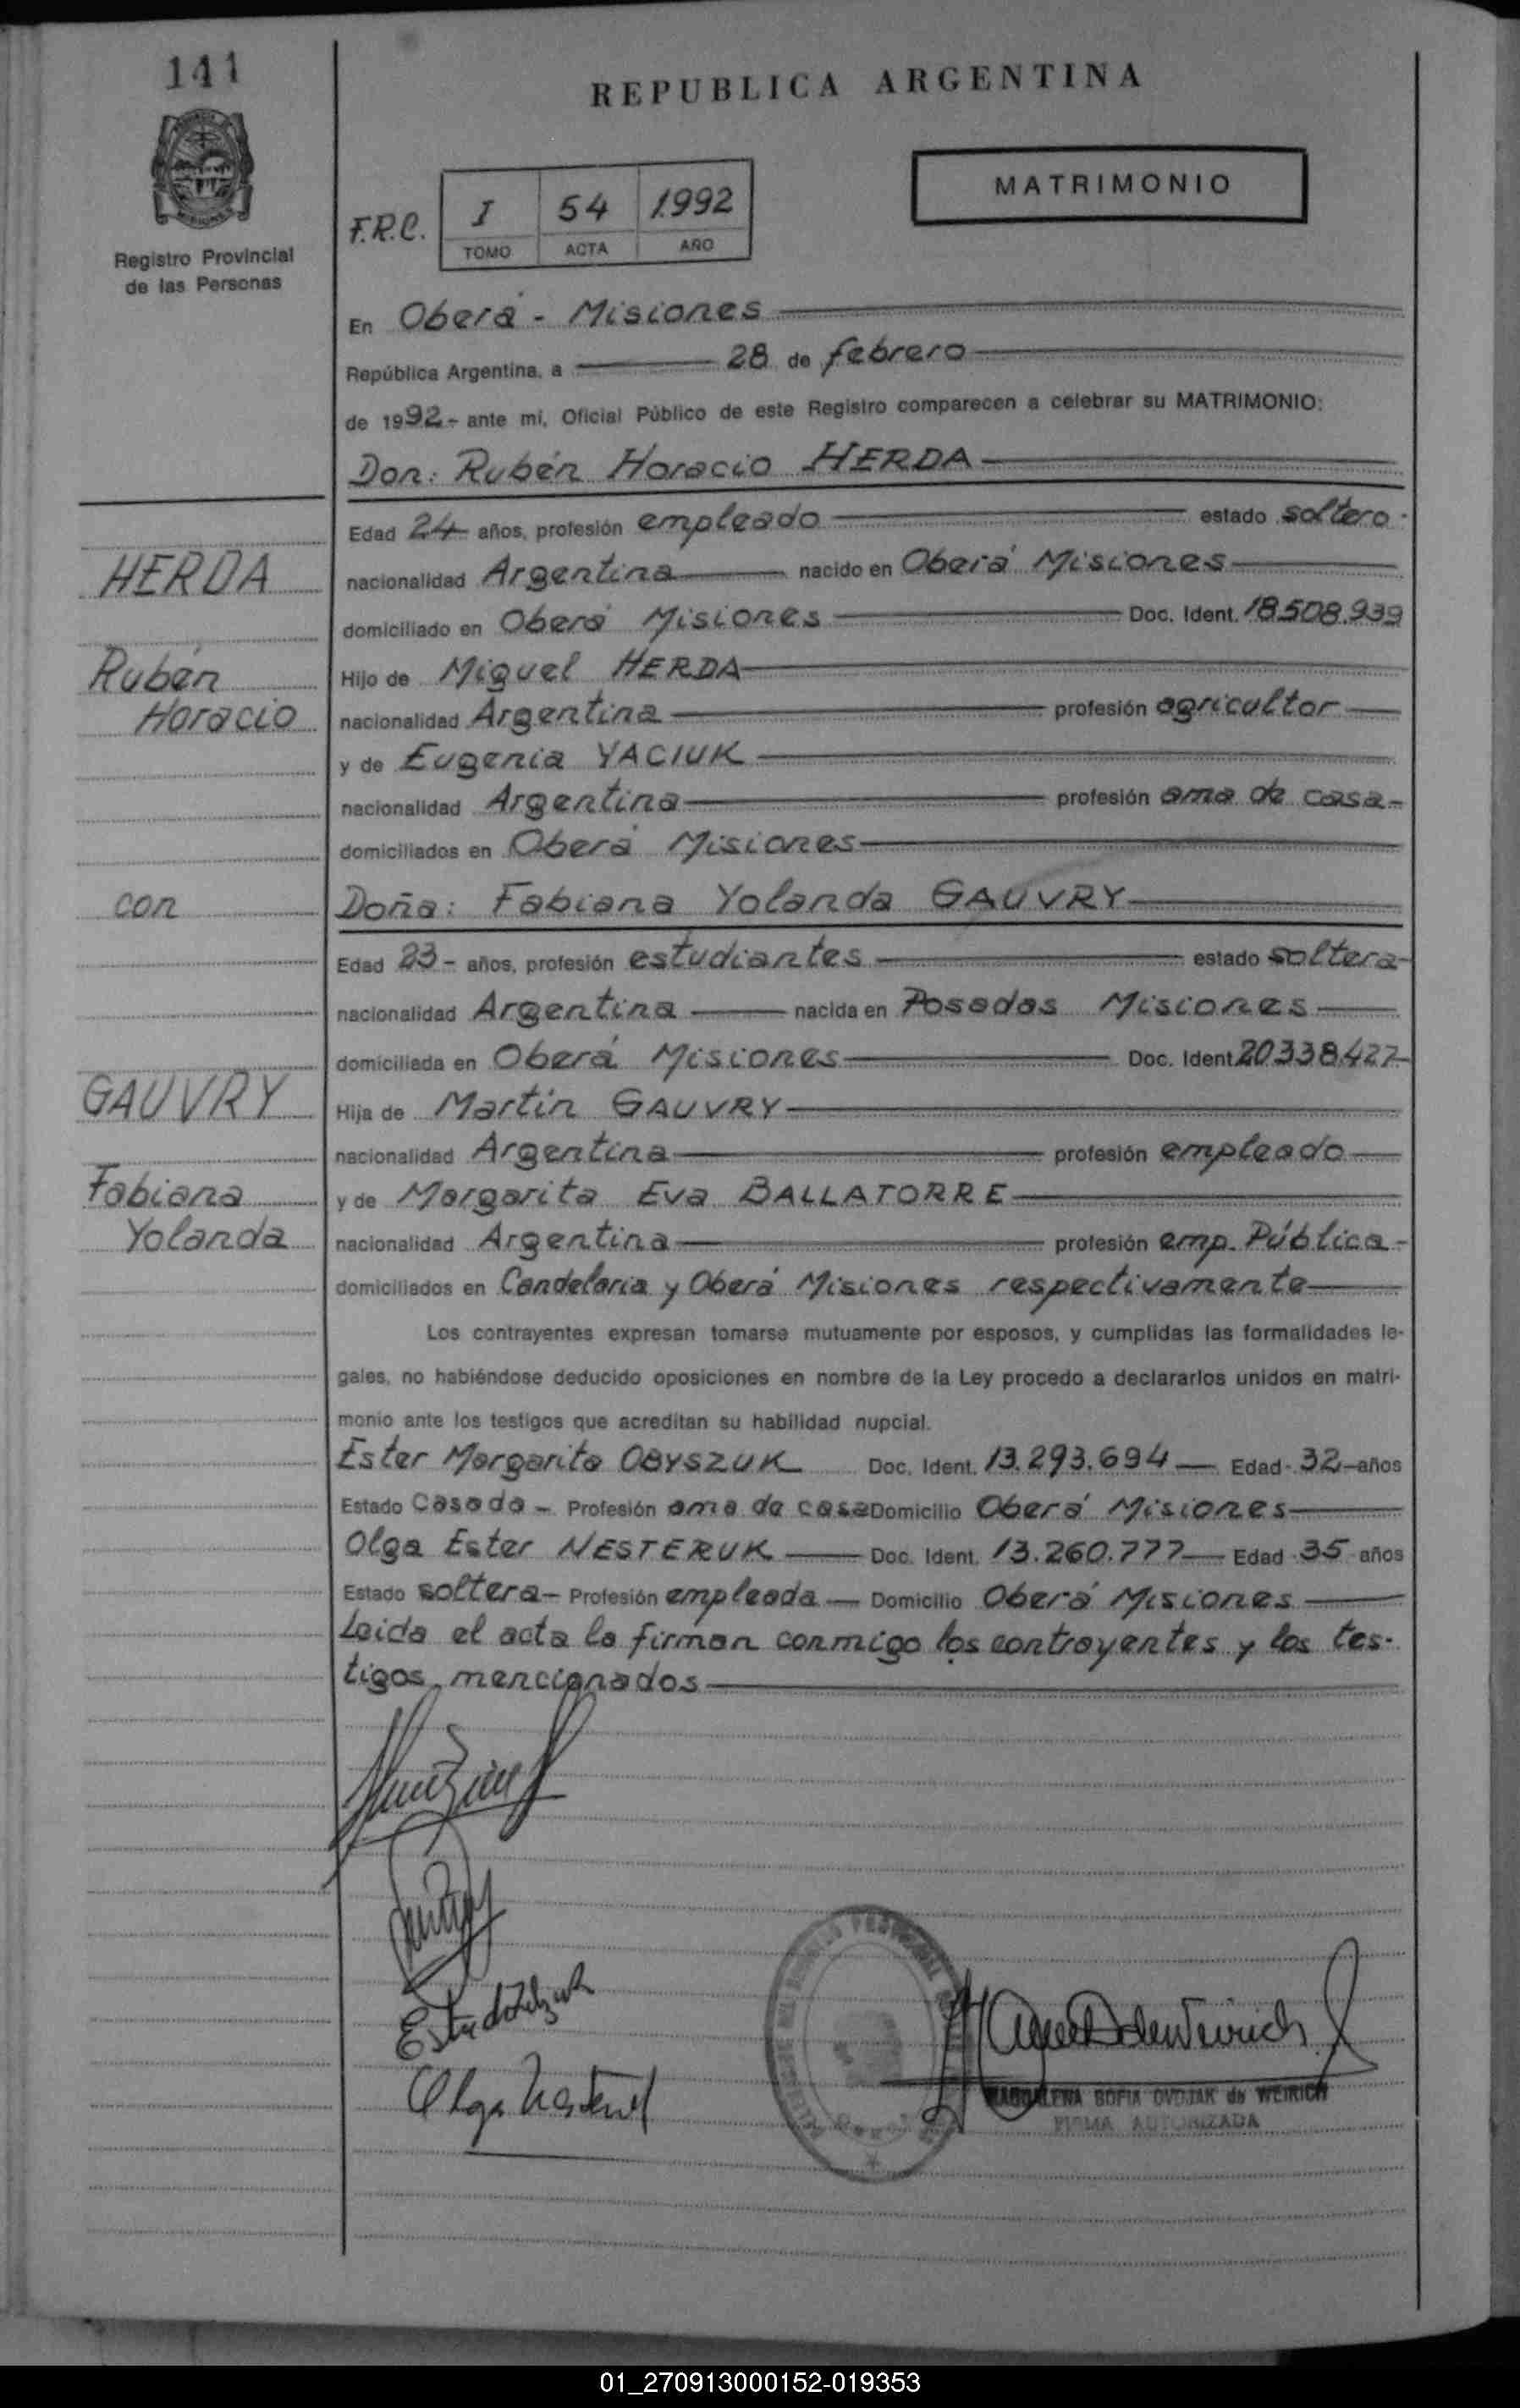 141
REPUBLICA ARGENTINA
MATRIMONIO
Registro Provincial
de las Personas
F.R.C.
I 54 1992
TOMO ACTA AÑO
En Oberá - Misiones
República Argentina, a 28 de febrero
de 1992- ante mi, Oficial Público de este Registro comparecen a celebrar su MATRIMONIO:
Don: Rubén Horacio HERDA
Edad 24 años, profesión empleado estado soltero.
HERDA
nacionalidad Argentina nacido en Oberá Misiones
domiciliado en Oberá Misiones Doc. Ident. 18.508.939
Rubén
Hijo de Miguel HERDA
Horacio
nacionalidad Argentina profesión agricultor
y de Eugenia YACIUK
nacionalidad Argentina profesión ama de casa-
domiciliados en Oberá Misiones
con
Doña: Fabiana Yolanda GAUVRY
Edad 23- años, profesión estudiantes estado soltera-
nacionalidad Argentina nacida en Posadas Misiones
domiciliada en Oberá Misiones Doc. Ident. 20338.427-
GAUVRY
Hija de Martín GAUVRY
nacionalidad Argentina profesión empleado
Fabiana
y de Margarita Eva BALLATORRE
Yolanda
nacionalidad Argentina profesión emp. Pública-
domiciliados en Candelaria y Oberá Misiones respectivamente
Los contrayentes expresan tomarse mutuamente por esposos, y cumplidas las formalidades le-
gales, no habiéndose deducido oposiciones en nombre de la Ley procedo a declararlos unidos en matri-
monio ante los testigos que acreditan su habilidad nupcial.
Ester Margarita OBYSZUK Doc. Ident. 13.293.694 Edad 32 años
Estado Casada - Profesión ama de casa Domicilio Oberá Misiones
Olga Ester NESTERUK Doc. Ident. 13.260.777 Edad 35 años
Estado soltera - Profesión empleada Domicilio Oberá Misiones
Leida el acta la firman conmigo los contrayentes y los tes-
tigos mencionados
Olga
MAGDALENA SOFIA OVDJAK de WEIRICH
FIRMA AUTORIZADA
01_270913000152-019353